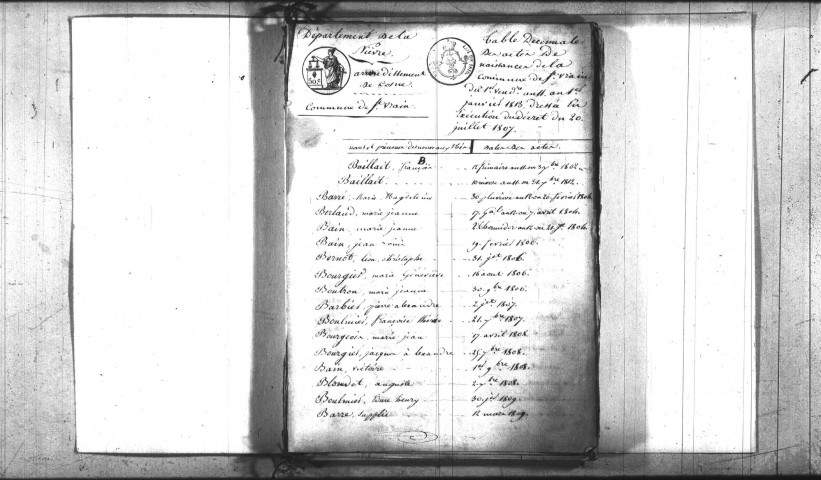 Département de la
Nièvre.
arrondissement
de Cosne
Commune de St. Vrain
Table Décennale
Des actes De
naissances de la
Commune de St. Vrain
du 1er Vend.re an 11 au 1er
janvier 1813, dressée En
Exécution du décret du 20
juillet 1807.
noms et prénoms des nouveaux nés
Dates des actes.
B.
Baillait, françois 12 frimaire an 11 ou 3 xbre 1802
Baillait
Barré, Marie Magdeleine 30 pluviose an 12 ou 20 février 1804
Berlaud, marie jeanne 17 Gal an 12 ou 7 avril 1804
Bain, marie jeanne
Bain, jean 9 février 1806
Bernot, leon christophe 31. jet 1806
Bourgier, marie Geneviève 16 aout 1806.
Boutron, marie jeanne 30. 9bre 1806.
Barbier, pierre alexandre 2 1807.
Boulmier, françoise 21. 7bre 1807.
Bourgeoin, marie jean 17 avril 1808
Bourgier, jacques alexandre 25 7bre 1808.
Bain, victoire 1er 9bre 1808.
Blondet, auguste 2 xbre 1808.
Boulmier, henry 30 jet 1809.
Barré, 12 mars 1809.